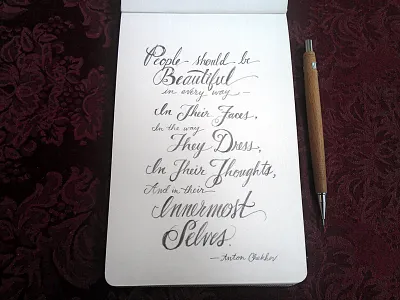 People should be
Beautiful
in every way —
In Their Faces,
In the way
They Dress,
In Their Thoughts,
And in their
Innermost
Selves.
—Anton Chekhov